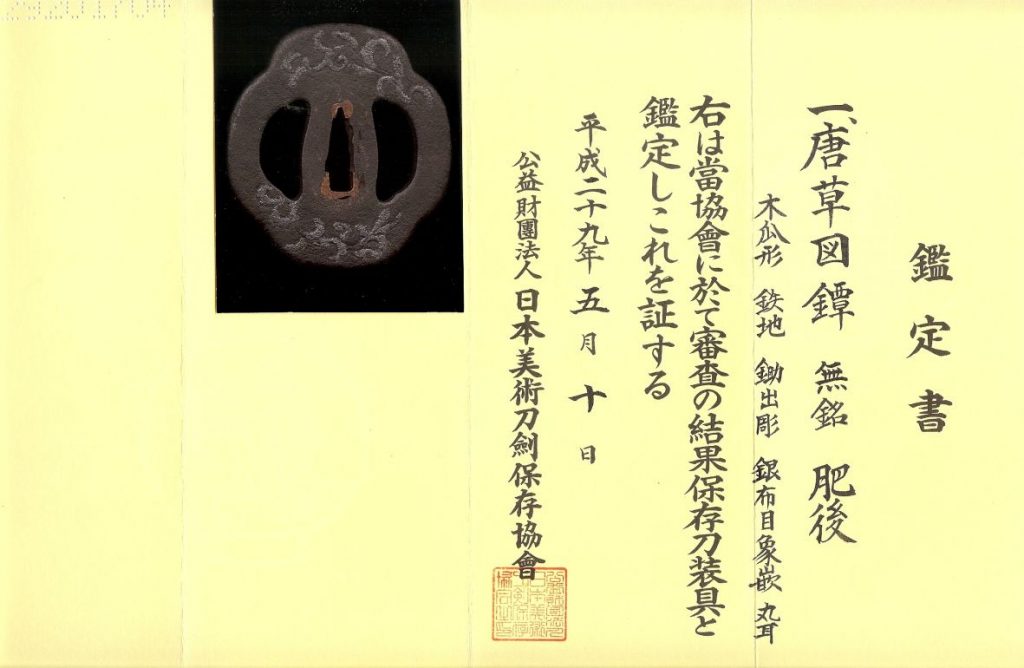 鑑定書
一、唐草図鐔 無銘 肥後
木瓜形 鉄地 鋤出彫 銀布目象嵌 丸耳
右は當協會に於て審査の結果保存刀装具と
鑑定しこれを証する
平成二十九年 五月 十日
公益財團法人 日本美術刀劍保存協會